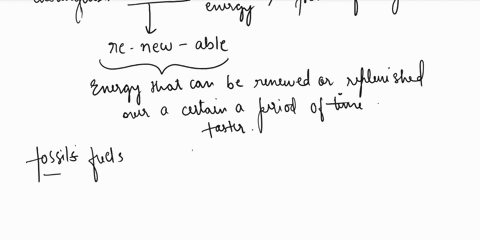 energy
re-new-able
Energy that can be renewed or replenished
over a certain a period of time
faster.
fossils fuels